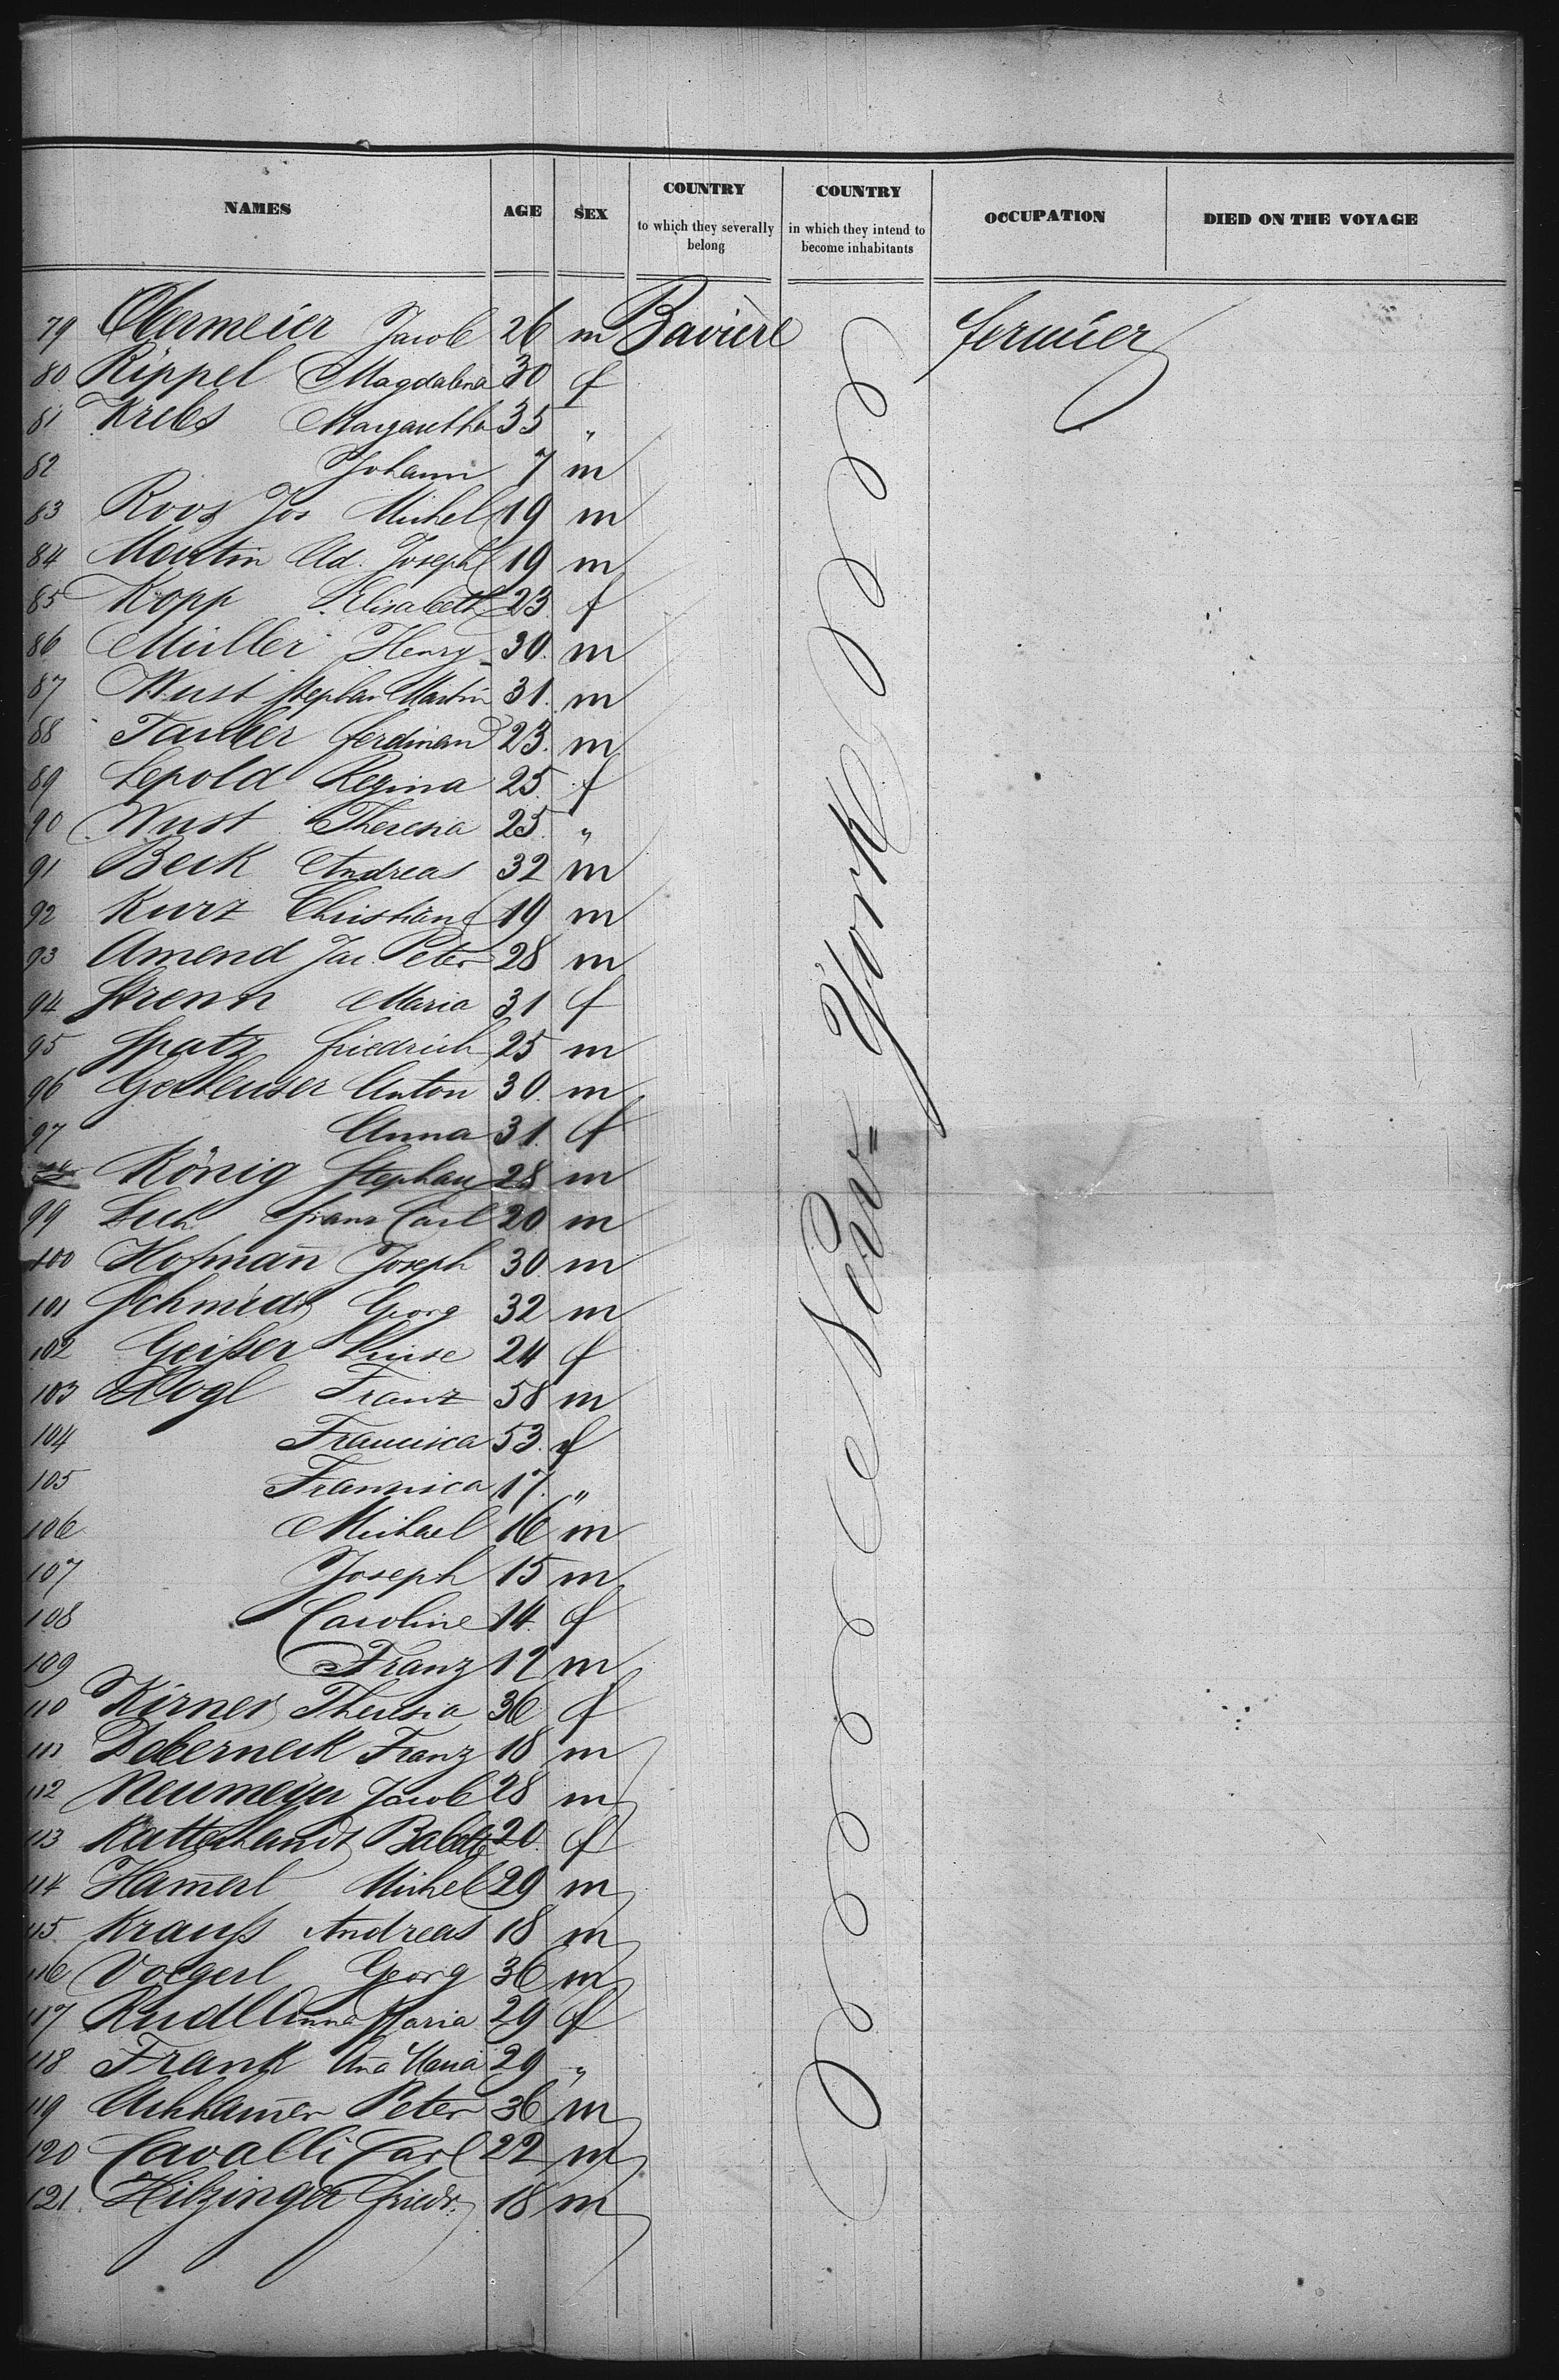 NAMES AGE SEX COUNTRY to which they severally belong COUNTRY in which they intend to become inhabitants OCCUPATION DIED ON THE VOYAGE
79 Obermeier Jacob 26 m Bavière fermier
80 Rippel Magdalena 30 f
81 Krebs Margaretha 35 "
82 Johann 7 m
83 Roos Jos Michel 19 m
84 Martin Ad. Joseph 19 m
85 Kopp Elisabeth 23 f
86 Müller Henry 30 m
87 Wust Stephan Martin 31 m
88 Tauber ferdinand 23 m
89 Lepold Regina 25 f
90 Wust Theresia 25 "
91 Beck Andreas 32 m
92 Kurz Christian 19 m
93 Amend Jac. Peter 28 m
94 Strenn Maria 31 f
95 Spatz friedrich 25 m
96 Anton 30 m
97 Anna 31 f
König Stephan 28 m
99 franz Carl 20 m
100 Hofman̄ Joseph 30 m
101 Schmidt Georg 32 m
102 Geißer Luise 24 f
103 Hogl Franz 58 m
104 Francisca 53 f
105 Francisca 17 "
106 Michael 16 m
107 Joseph 15 m
108 Caroline 14 f
109 Franz 12 m
110 Kirner Theresia 36 f
111 Deberneck Franz 18 m
112 Neumeyer Jacob 28 m
113 Babette 20 f
114 Ham̄erl Michel 29 m
115 Krauß Andreas 18 m
116 Voegerl Georg 36 m
117 Rudl Anna Maria 29 f
118 Frank An̄a Maria 29 "
119 Achham̄er Peter 36 m
120 Cavalli Carl 22 m
121 Hilzinger friedr. 18 m
New-York